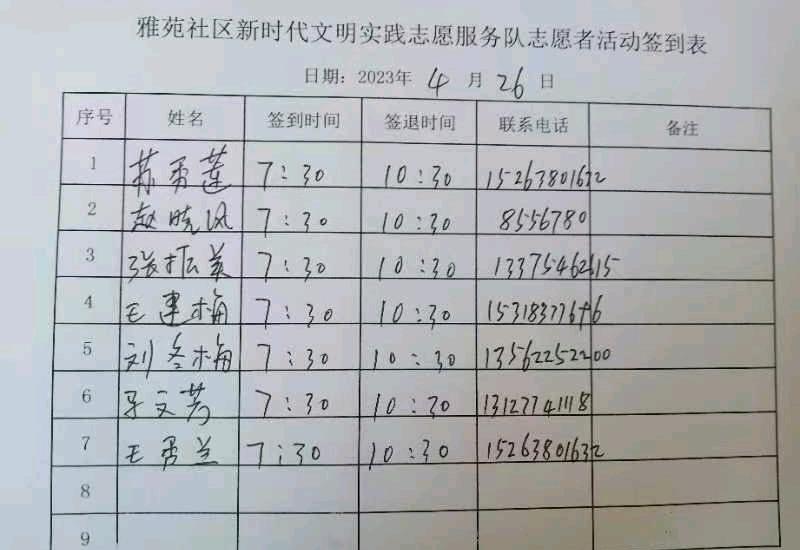 雅苑社区新时代文明实践志愿服务队志愿者活动签到表
日期：2023年 4 月 26 日
序号 姓名 签到时间 签退时间 联系电话 备注
1 苏秀莲 7:30 10:30 15263801632
2 赵晓风 7:30 10:30 8556780
3 张振英 7:30 10:30 13375462615
4 王建梅 7:30 10:30
5 刘冬梅 7:30 10:30 13562252200
6 文芳 7:30 10:30 13127741118
7 王秀兰 7:30 10:30 15263801632
8
9